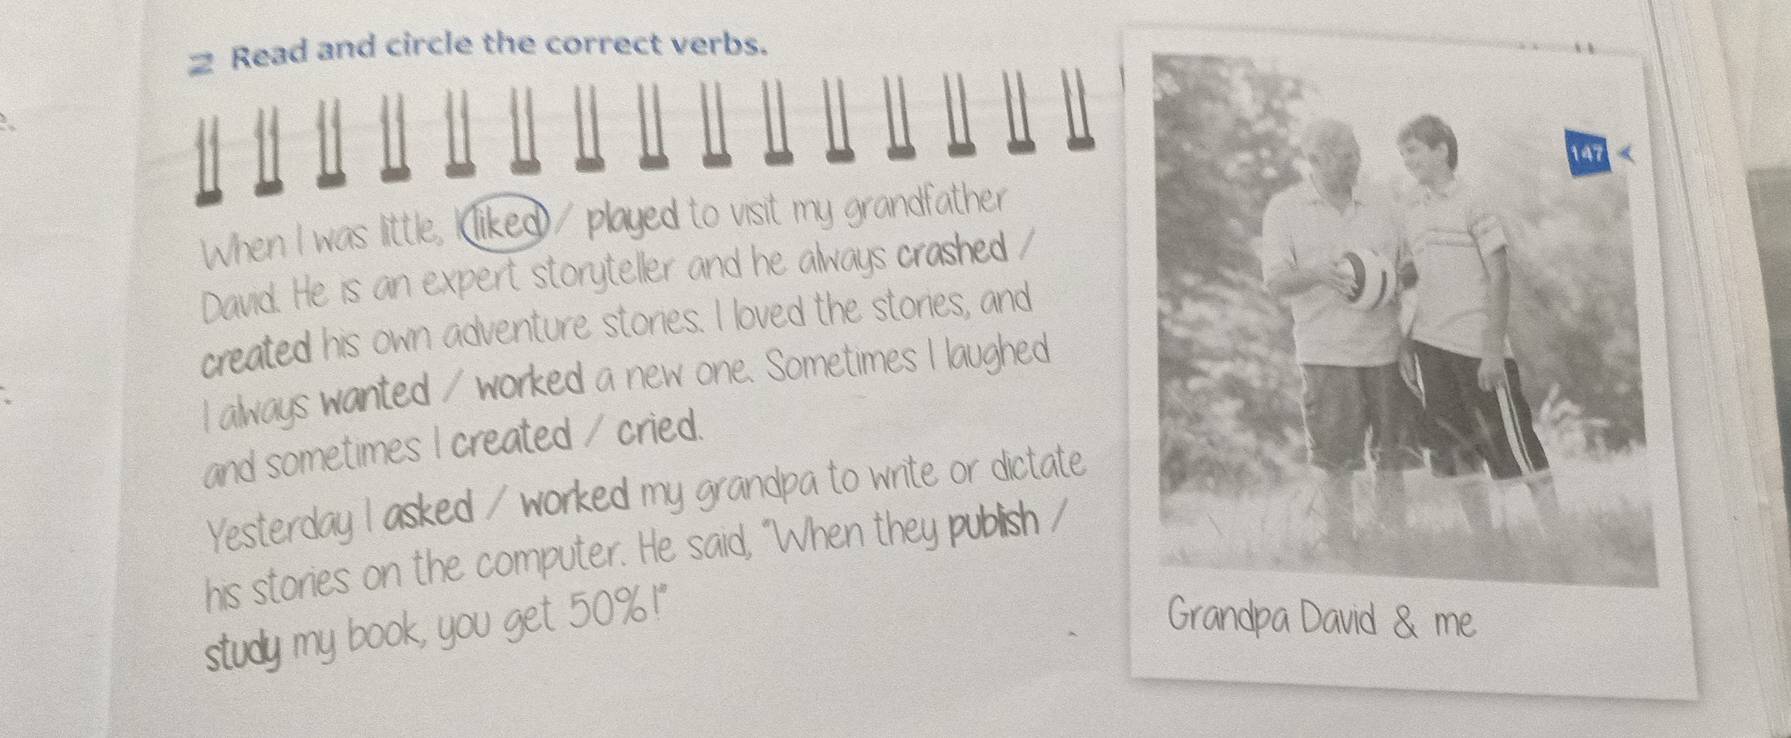 2 Read and circle the correct verbs.
147
When I was little, I liked / played to visit my grandfather
David. He is an expert storyteller and he always crashed /
created his own adventure stories. I loved the stories, and
I always wanted / worked a new one. Sometimes I laughed
and sometimes I created / cried.
Yesterday I asked / worked my grandpa to write or dictate
his stories on the computer. He said, "When they publish /
study my book, you get 50%!"
Grandpa David & me